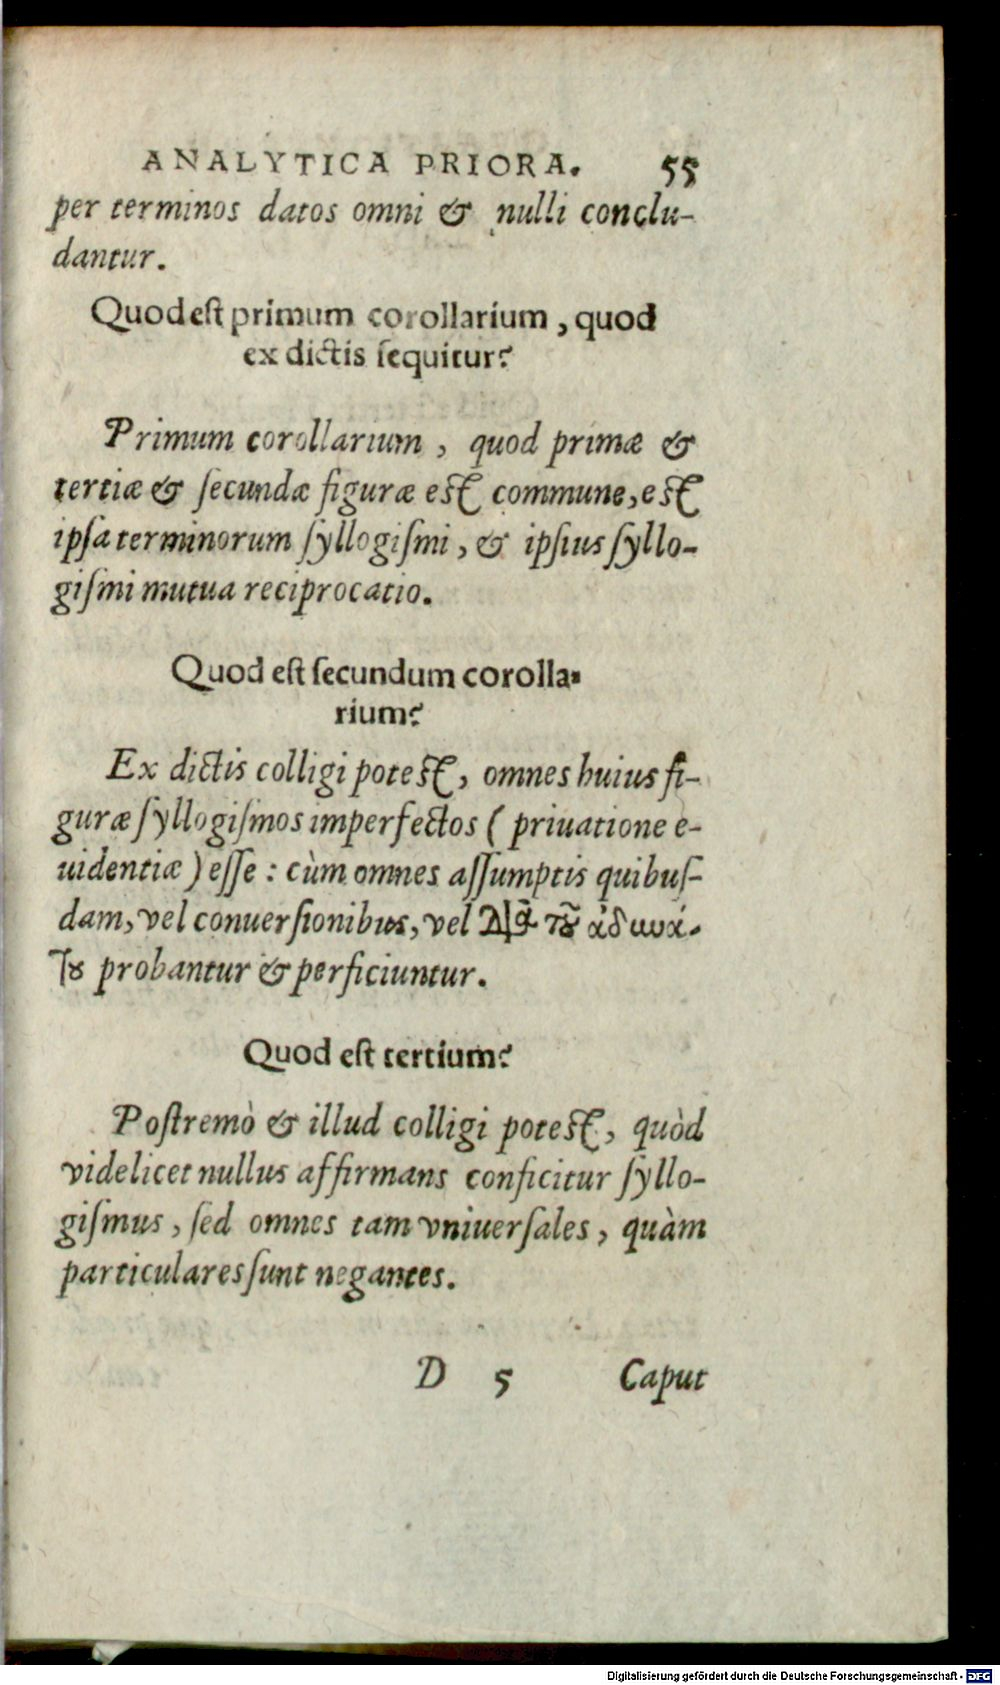 ANALYTICA PRIORA. 55
per terminos datos omni & nulli conclu-
dantur.
Quod est primum corollarium, quod
ex dictis sequitur?
Primum corollarium, quod primæ &
tertiæ & secundæ figuræ est commune, est
ipsa terminorum syllogismi, & ipsius syllo-
gismi mutua reciprocatio.
Quod est secundum corolla-
rium?
Ex dictis colligi potest, omnes huius fi-
guræ syllogismos imperfectos ( priuatione e-
uidentiæ ) esse: cùm omnes assumptis quibus-
dam, vel conuersionibus, vel διὰ τοῦ ἀδυνά-
του probantur & perficiuntur.
Quod est tertium?
Postremò & illud colligi potest, quòd
videlicet nullus affirmans conficitur syllo-
gismus, sed omnes tam vniuersales, quàm
particulares sunt negantes.
D 5 Caput
Digitalisierung gefördert durch die Deutsche Forschungsgemeinschaft - DFG